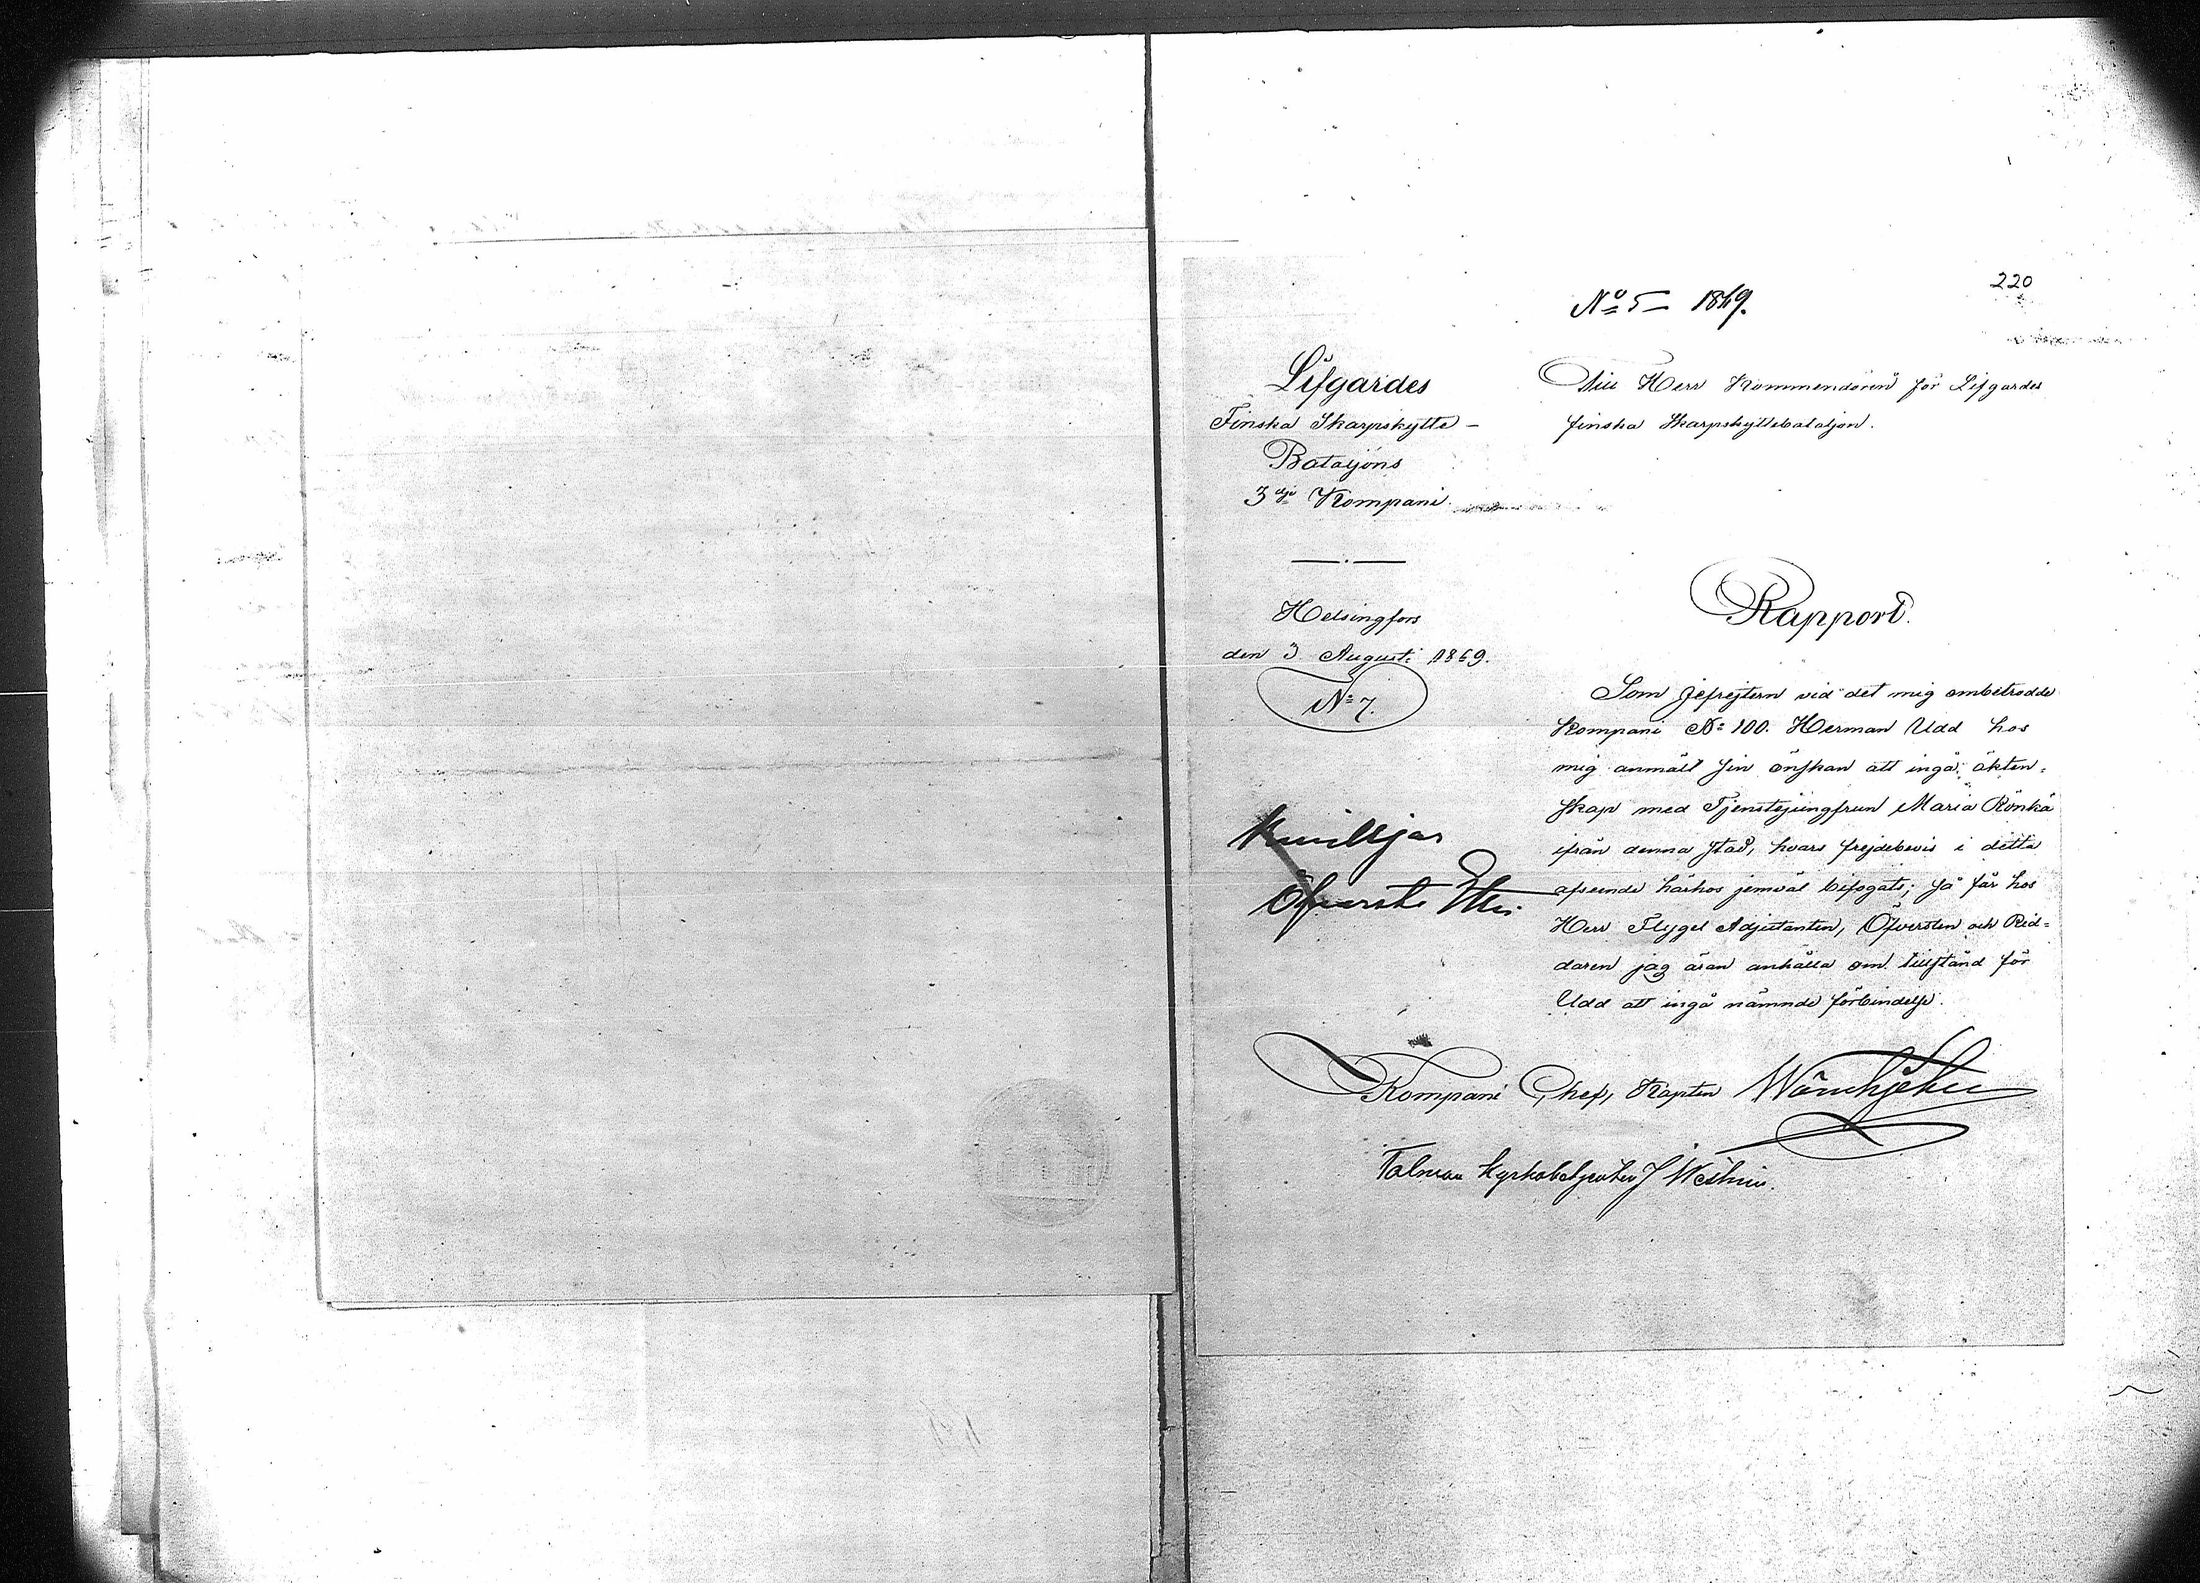 220
No 5 1869.
Lifgardes
Finska Skarpskytte-
Bataljons
3dje Kompani.
Helsingfors
den 3 Augusti 1869.
No 7.
Till Herr Kommendören för Lifgardes
finska Skarpskyttebataljon.
Rapport.
Som Gefrejtern vid det mig ombetrodde
Kompani No 100. Herman Udd hos
mig anmält sin önskan att ingå äkten-
skap med Tjenstejungfrun Maria Rönkä
ifrån denna stad, hvars frejdebevis i detta
afseende härhos jemväl bifogats; så får hos
Herr Flygel Adjutanten, Öfversten och Rid-
daren jag äran anhålla om tillstånd för
Udd att ingå nämnde förbindelse.
Öfverste
Kompani Chef, Kapten
Talman Kyrkobetjenten J